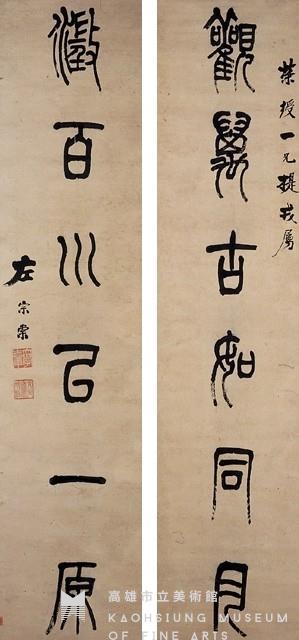 榮授一兄提戎屬
觀萬古如同月
澂百川㠯一原
左宗棠
高雄市立美術館
KAOHSIUNG MUSEUM
OF FINE ARTS